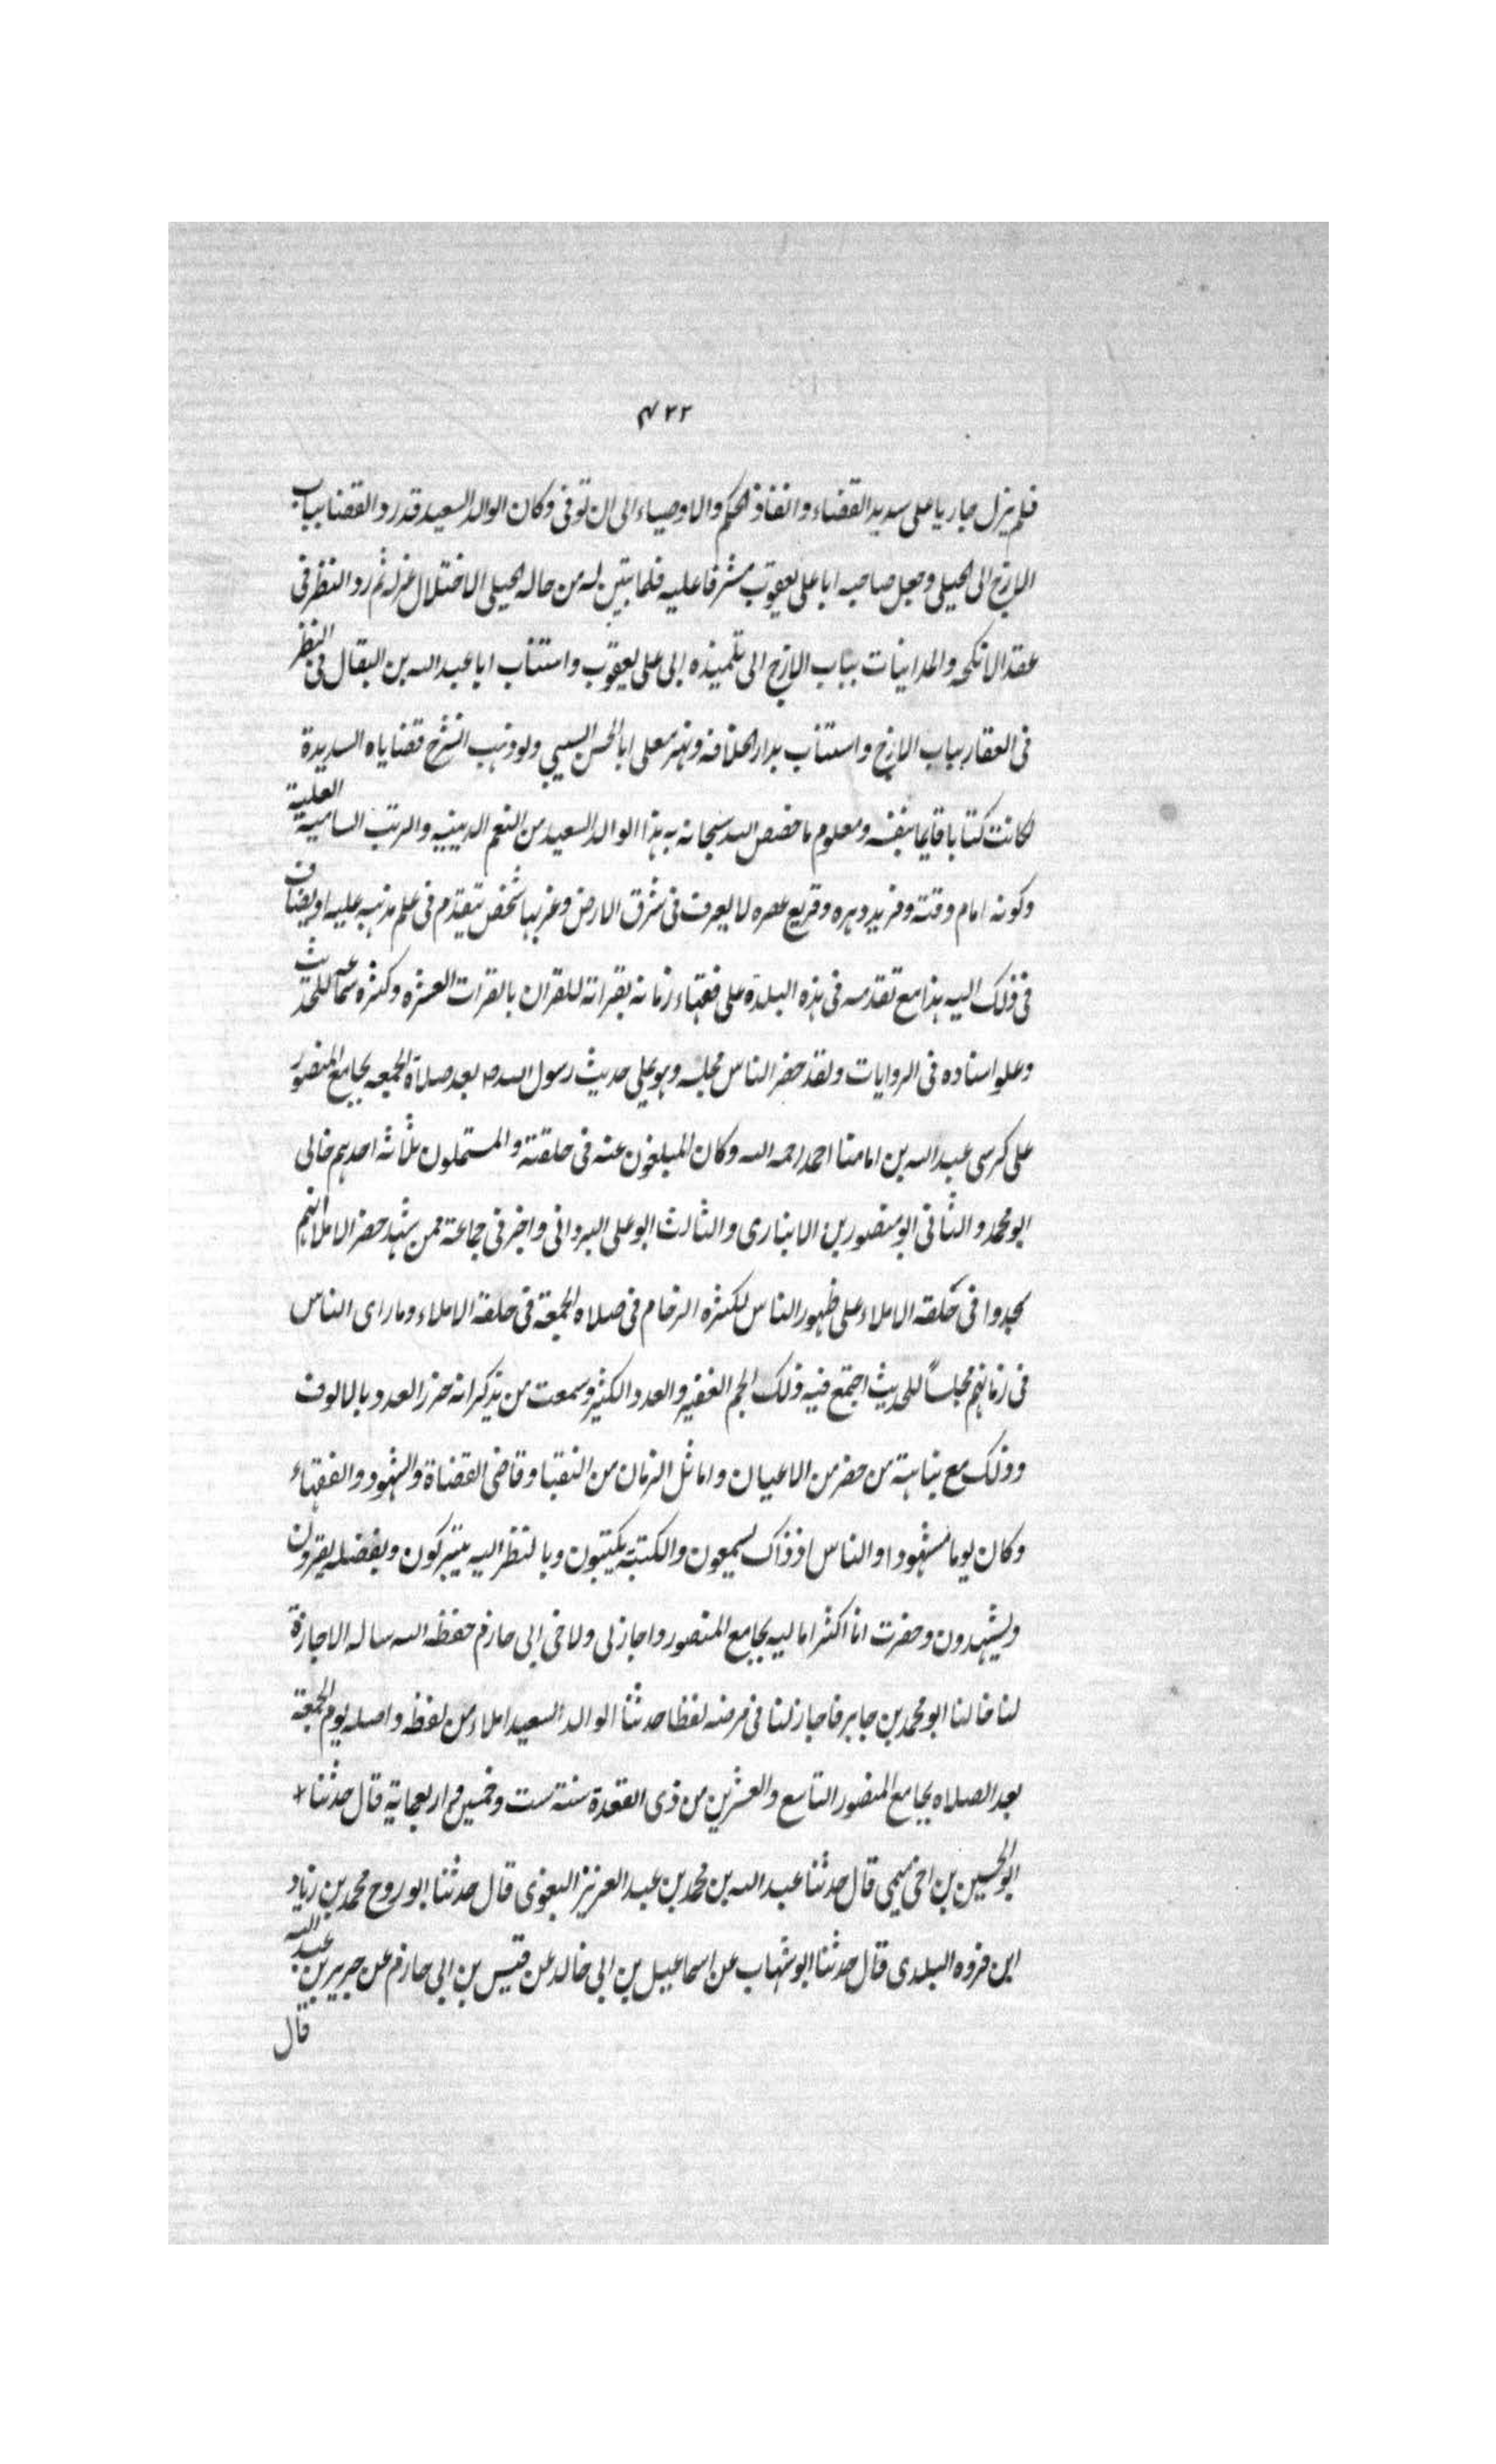 ٤٢٢
فلم يزل جاريا على سديد القضاء وانفاذ الحكم والاوصياء الى ان توفى وكان الوالد السعيد قد رد القضا بباب
الازج الى الجيلى وجعل صاحبه ابا على يعقوب مشرفا عليه فلما تبين له من حاله الجيلى الاختلال عزله ثم رد النظر فى
عقد الانكحه والمداينات بباب الازج الى تلميذه ابى على يعقوب واستناب ابا عبد الله بن البقال فى النظر
فى العقار بباب الازج واستناب بدار الخلافه ونهر معلى ابا الحسن السيبى ولو ذهب انشرح قضاياه السديدة
لكانت كتابا قايما بنفسه ومعلوم ما خصص الله سبحانه به هذا الوالد السعيد من النعم الدينيه والرتب السامية العلية
وكونه امام وقته وفريد دهره وقريع عصره لا يعرف فى شرق الارض وغربها شخص يتقدم فى علم مذهبه عليه او يضاف
فى ذلك اليه هذا مع تقدمه فى هذه البلدة على فقهاء زمانه بقراته للقران بالقرات العشره وكثره سماعه للحديث
وعلو اسناده فى الروايات ولقد حضر الناس مجلسه وهو يملى حديث رسول الله ص بعد صلاة الجمعه بجامع المنصور
على كرسى عبد الله بن امامنا احمد رحمه الله وكان المبلغون عنه فى حلقته والمستملون ثلاثه احدهم خالى
ابو محمد والثانى ابو منصور بن الانبارى والثالث ابو على البردانى واخبر فى جماعة ممن شهد حضر الاملا انهم
سجدوا فى حلقه الاملاء على ظهور الناس لكثره الزحام فى صلاه الجمعة فى حلقة الاملاء وما راى الناس
فى زمانهم مجلساً للحديث اجتمع فيه ذلك الجم الغفير والعدد الكثير وسمعت من يذكر انه حزر العدد بالالوف
وذلك مع نباهة من حضر من الاعيان واماثل الزمان من النقبا وقاضى القضاة والشهود والفقهاء
وكان يوما مشهودا والناس اذ ذاك يسمعون والكتبة يكتبون وبالنظر اليه يتبركون وبفضله يقرون
ويشهدون وحضرت انا اكثر اماليه بجامع المنصور واجاز لى ولاخى ابى حازم حفظه الله ساله الاجازة
لنا خالنا ابو محمد بن جابر فاجاز لنا فى مرضه لفظا حدثنا الوالد السعيد املاء من لفظه واصله يوم الجمعة
بعد الصلاه بجامع المنصور التاسع والعشرين من ذى القعدة سنة ست وخمسين واربعماية قال حدثنا
ابو الحسين بن اخى ميمى قال حدثنا عبد الله بن محمد بن عبد العزيز البغوى قال حدثنا ابو روح محمد بن زياد
ابن فروه البلدى قال حدثنا ابو شهاب عن اسماعيل بن ابى خالد عن قيس بن ابى حازم عن جرير بن عبد الله
قال